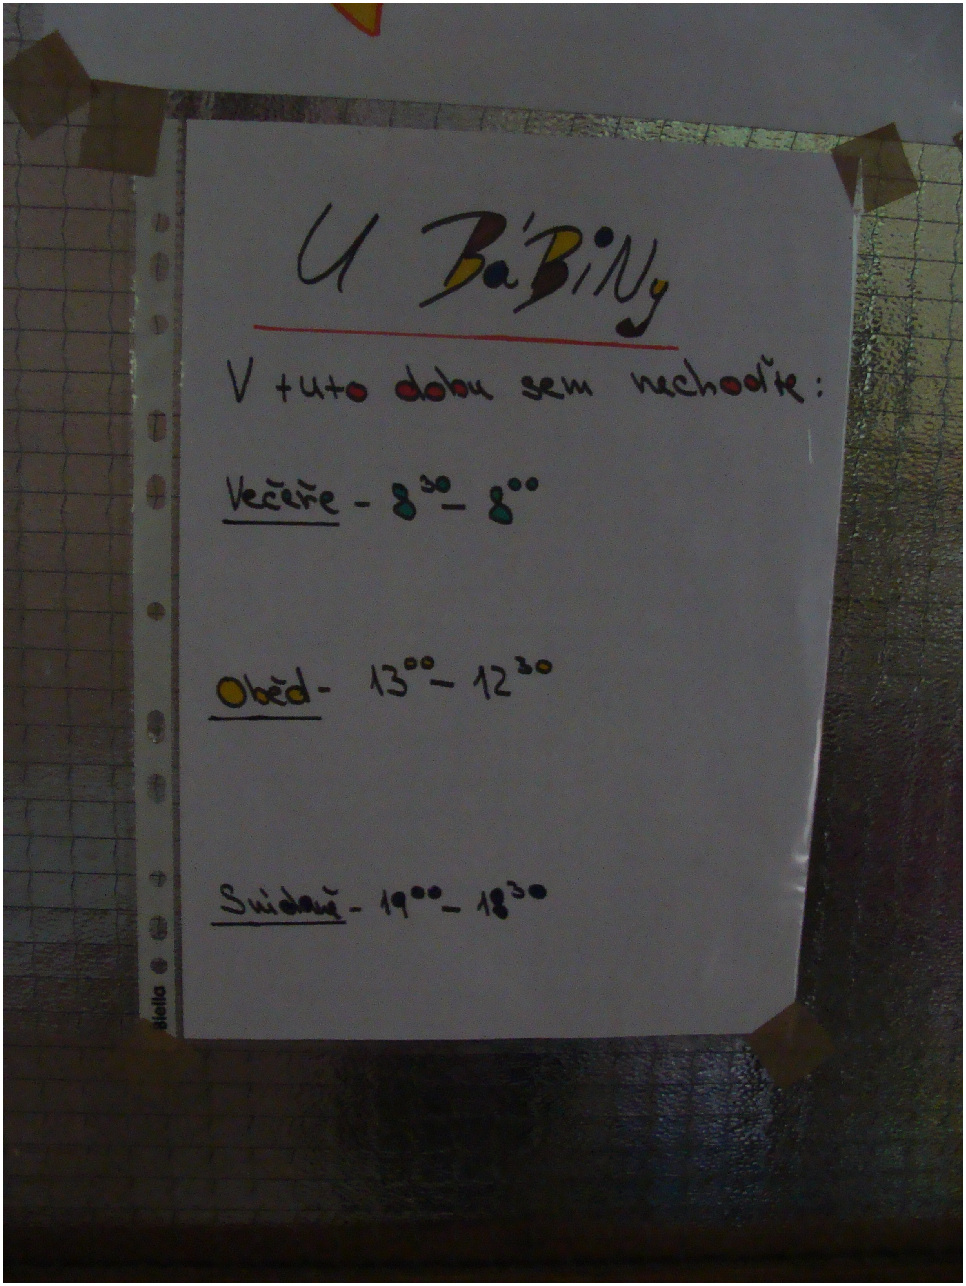 U BáBiNy
V tuto dobu sem nechoďte:
Večeře - 8³⁰ - 8⁰⁰
Oběd - 13⁰⁰ - 12³⁰
Snídaně - 19⁰⁰ - 18³⁰
Biella